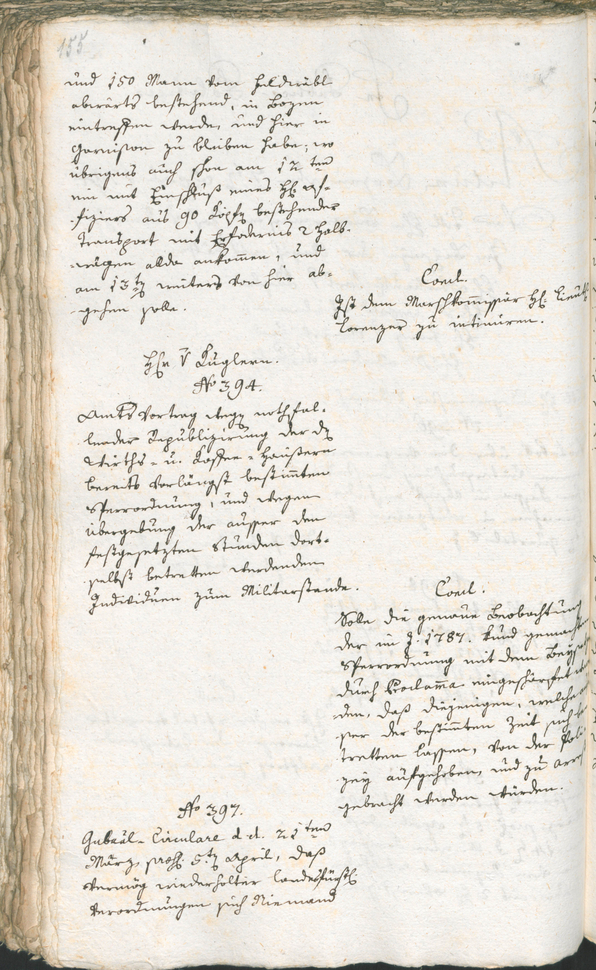 155
und 150 Mann vom Feldwäbl
abwärts bestehend, in Bozen
eintreffen werde, und hier in
Garnision zu bleiben habe; wo
übrigens auch schon am 12ten
ein mit Einschluß eines H: of-
fiziers aus 90 Köpfen bestehender
Transport mit Erfodernis 2 Halb-
wägen alda ankommen, und
am 13ten weiters von hier ab-
gehen solle.
Concl.
Ist dem Marschkommissär H: Lieut:
Lorenzer zu intimiren.
Hr: v Kuglern.
No 394.
Amts Vortrag wegen nothfal-
lender Republizirung der
Wirths- u. Kaffee-Häusern
bereits vorlängst bestimmten
Sperrordnung, und wegen
übergebung der ausser den
festgesetzten Stunden dort-
selbst betretten werdenden
Individuen zum Militarstande.
Concl.
Solle die genaue Beobachtung
der im J. 1787. kund gemachten
Sperrordnung mit dem
durch Proclama eingeschärfet
den, daß diejenigen, welche
ser der bestimmten Zeit sich
tretten lassen, von der Poli
zey aufgehoben, und zu Arrest
gebracht werden würden.
No 397.
Gubernial-Circulare d. d. 21ten
März, præs: 5ten April, daß
vermög wiederholter Landesfürstl:
Verordnungen sich Niemand